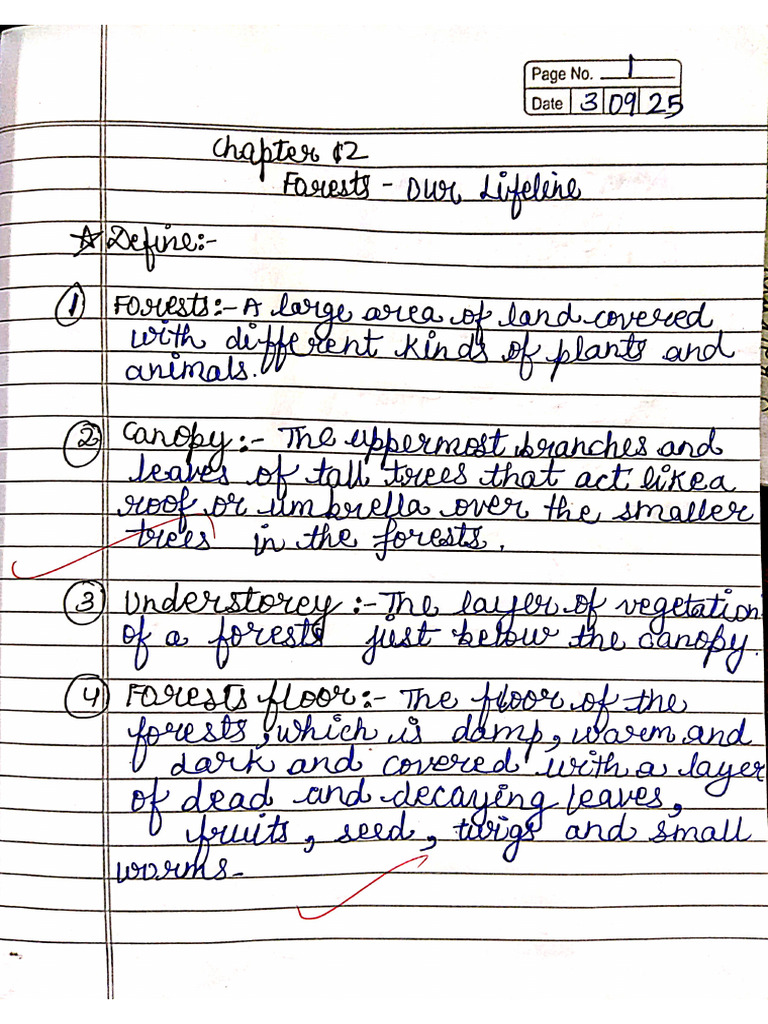 Page No. 1
Date 3 09 25
Chapter 12
Forests - Our Lifeline
☆ Define:-
① Forests:- A large area of land covered
with different kinds of plants and
animals.
② Canopy:- The uppermost branches and
leaves of tall trees that act like a
roof or umbrella over the smaller
trees in the forests.
③ Understorey:- The layer of vegetation
of a forests just below the canopy.
④ Forests floor:- The floor of the
forests, which is damp, warm and
dark and covered with a layer
of dead and decaying leaves,
fruits, seed, twigs and small
worms.